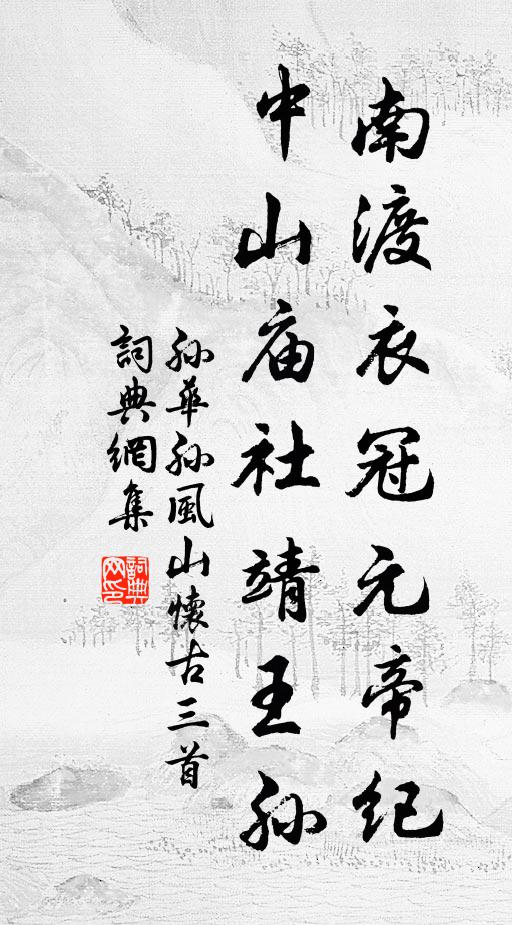 南渡衣冠元帝纪
中山庙社靖王孙
孙華孙風山懷古三首
詞典網集
詞典網印